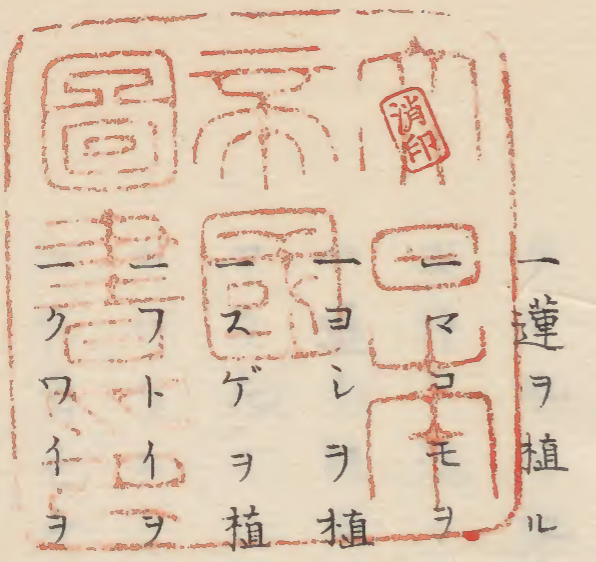 一蓮ヲ植ル
一マコモヲ
一ヨシヲ植
一スゲヲ植
一フトイヲ
一クワイヲ
消印